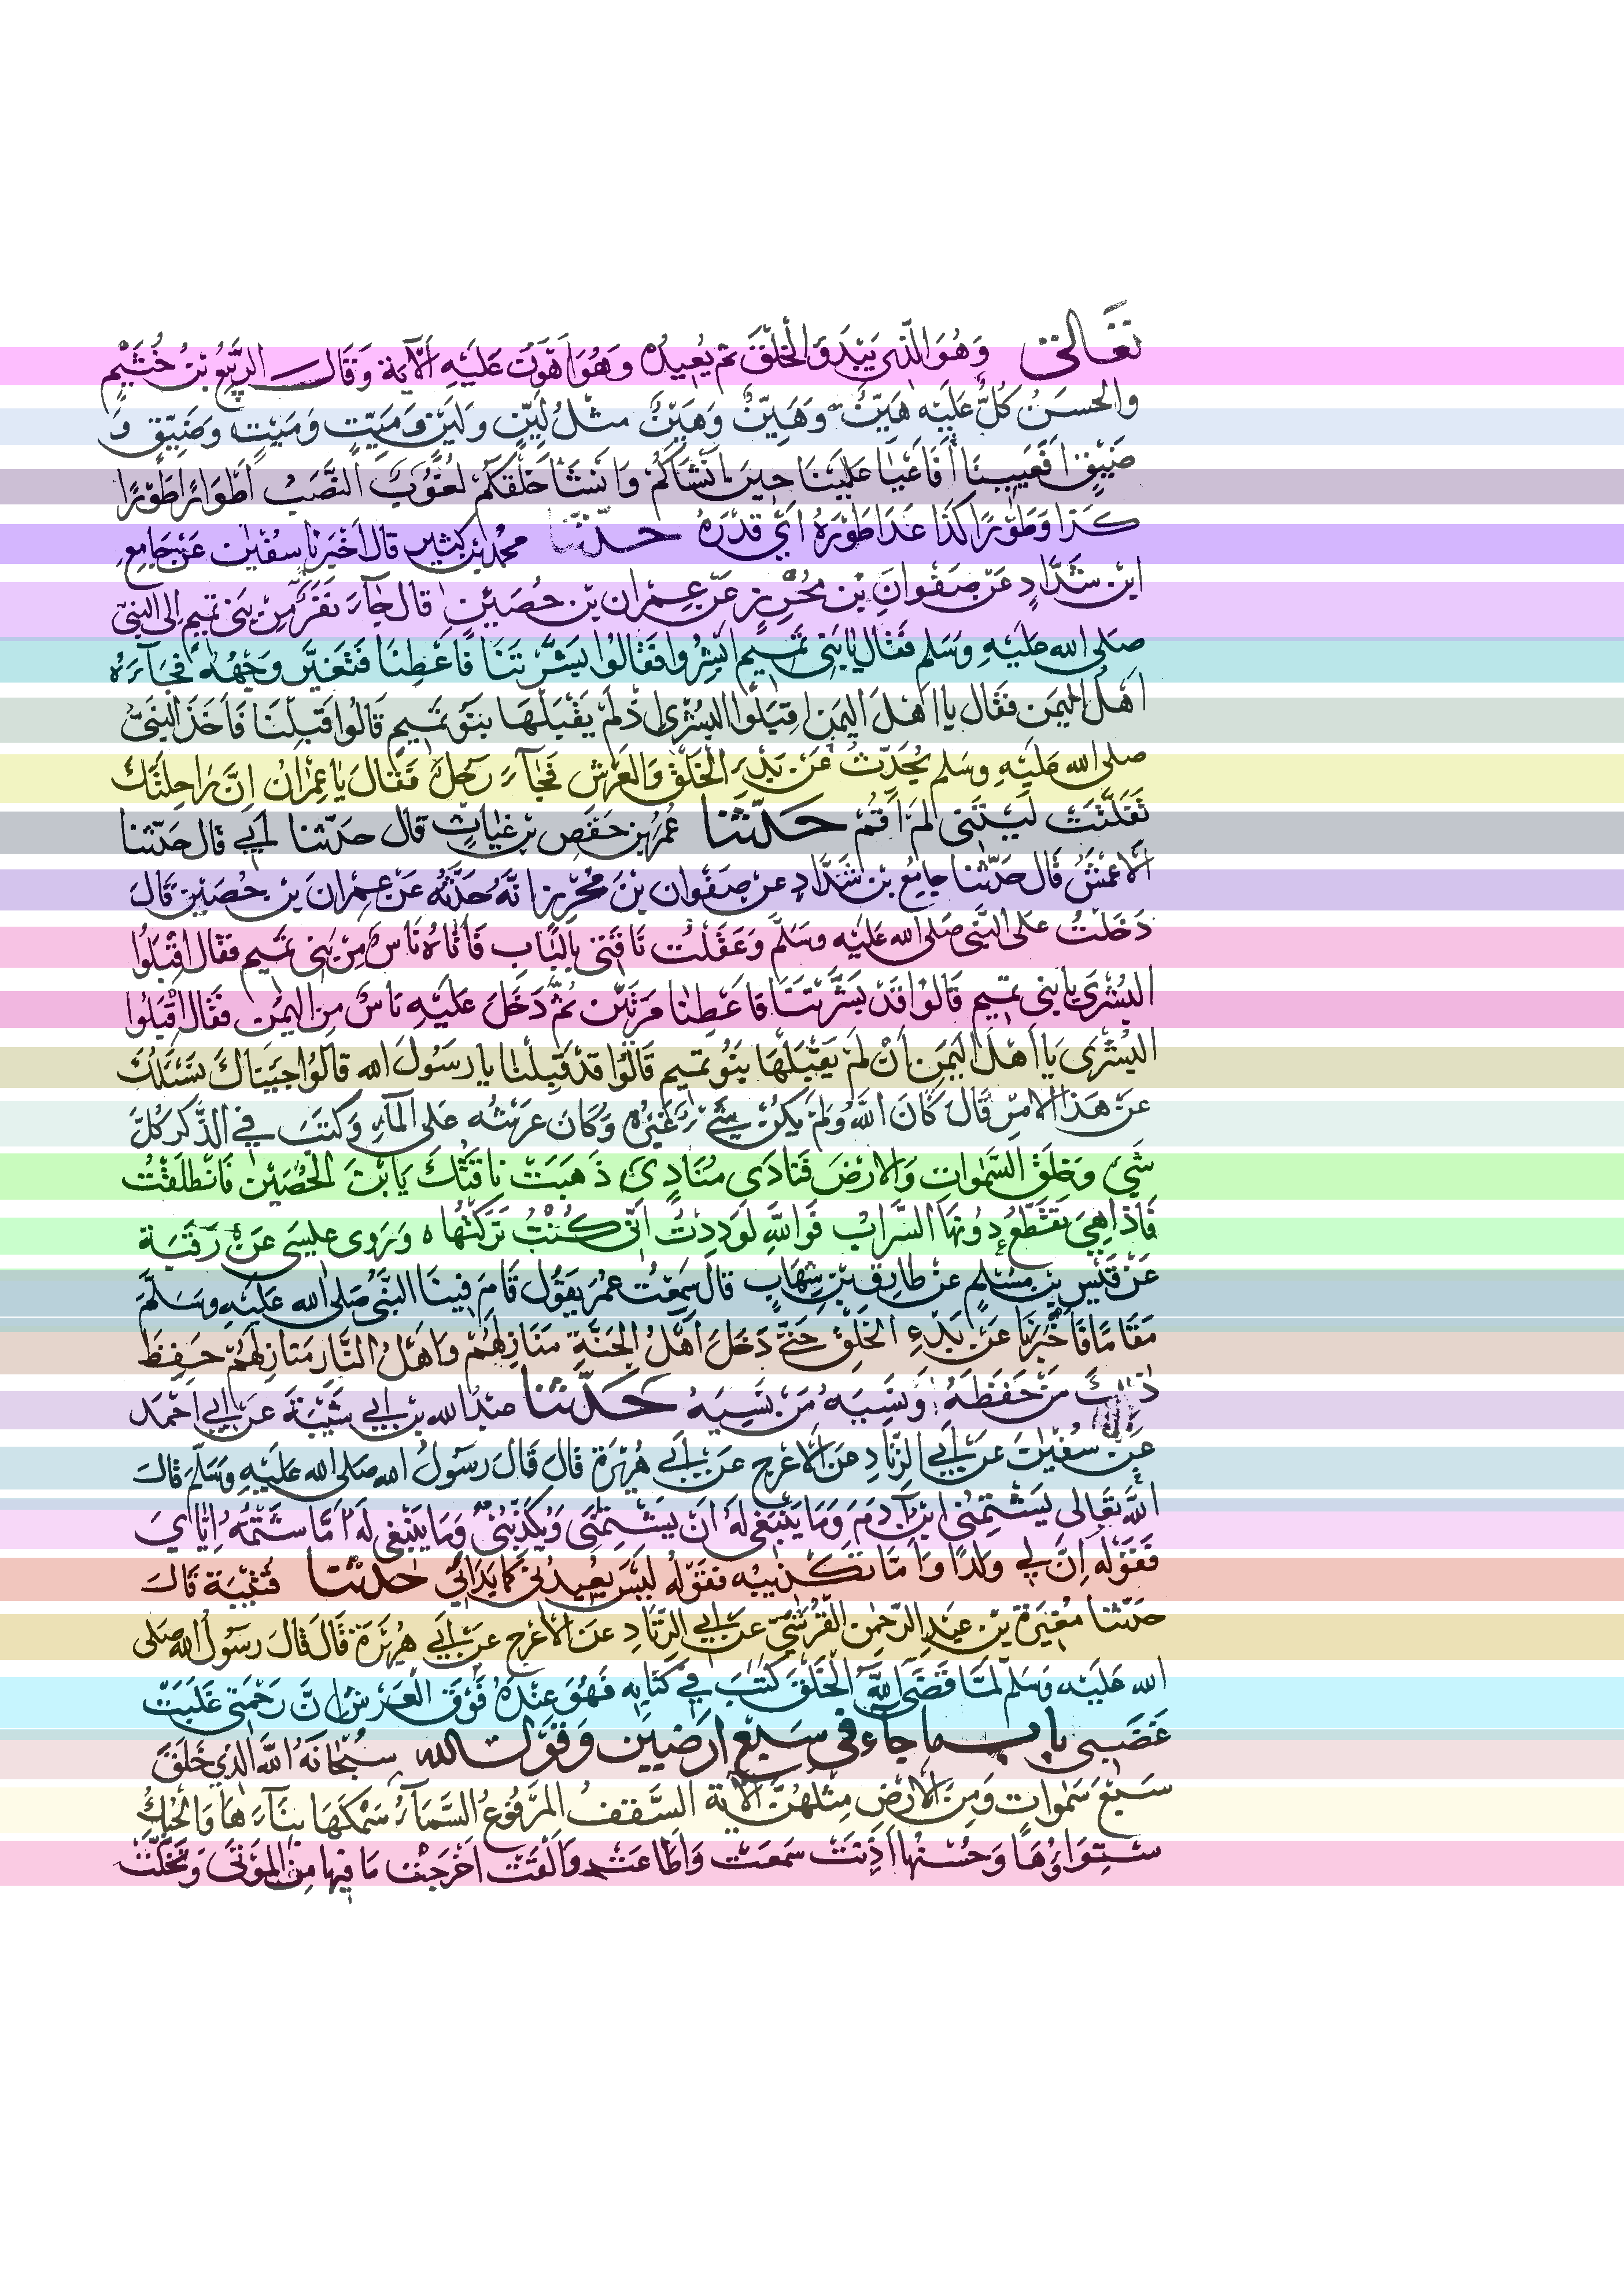 تَعَالىٰ وَهُوَ الَّذِي يَبْدَؤُا الْخَلْقَ ثم يُعِيدُهُ وَهُوَ اَهْوَنُ عَلَيْهِ الْآيَة وَقَالَ الرَّبِيْعُ بْنُ خُثَيْمٍ
والحسَنُ كُلٌّ عَلَيْهِ هَيِّنٌ وَهَيْنٌ وَهَيِّنٌ مثلُ لَيْنٍ وَلَيِّنٍ وَمَيْتٍ وَمَيِّتٍ وَضَيْقٍ وَ
ضَيِّقٍ اَفَعَيِينَا اَفَاَعْيَا عَلَيْنَا حِينَ اَنْشَاَكُمْ وَاَنْشَاَ خَلْقَكُمْ لُغُوْبٌ النَّصَبُ اَطْوَارًا طَوْرًا
كَذَا وَطَوْرًا كَذَا عَدَا طَوْرَهُ اَيْ قَدْرَهُ حدثنا محمد بن كثير قال اَخْبَرَنا سُفْيٰن عَنْ جَامِعِ
ابن شَدَّادٍ عَن صَفْوَانِ بْنِ مُحْرِزٍ عَنْ عِمْرَان بن حُصَيْنٍ قال جَاءَ نَفَرٌ مِنْ بَنِي تميم اِلى النبيّ
صَلى الله عَلَيْهِ وَسَلم فَقَالَ يَا بَنِي تَمِيم اَبْشِرُوا فَقَالُوا بَشَّرْتَنَا فَاَعْطِنَا فَتَغَيَّرَ وَجْهُهُ فَجَاءَهُ
اَهْلُ اليَمَن فَقَال يا اَهْلَ اليَمَنِ اقبَلُوا البُشْرٰى اِذْ لَمْ يَقْبَلْهَا بَنُو تَمِيمٍ قَالُوا قَبِلْنَا فَاَخَذَ النَّبِيُّ
صلى الله عَلَيْهِ وسَلم يُحَدِّثُ عَنْ بَدْءِ الخَلْقِ وَالعَرْشِ فَجَاءَ رَجُلٌ فَقَالَ يَا عِمْرَانُ اِنَّ رَاحِلَتَكَ
تَفَلَّتَتْ لَيْتَنِي لَمْ اَقُمْ حَدّثنا عُمَرُ بن حَفْصِ بن غِيَاثٍ قال حَدّثنا اَبِي قال حَدّثنا
الاَعْمَشُ قَال حَدّثنا جَامِعُ بن شَدَّادٍ عن صَفْوَان بْنِ مُحْرِزٍ اَنَّهُ حَدَّثَهُ عَنْ عِمْرَانَ بن حُصَيْنٍ قَالَ
دَخَلْتُ عَلى النَّبِي صَلى الله عَلَيْهِ وسَلَّمَ وَعَقَلْتُ نَاقَتِي بِالْبَابِ فَاَتَاهُ نَاسٌ مِنْ بَنِي تميم فقال اقْبَلُوا
البُشْرَى يا بَنِي تميم قَالُوا قَدْ بَشَّرْتَنَا فَاَعْطِنا مَرَّتَيْن ثُمَّ دَخَلَ عَلَيْهِ نَاسٌ مِن اليَمَن فَقَال اقْبَلُوا
البُشْرَى يَا اَهْلَ اليَمَنِ اَنْ لَمْ يَقْبَلْهَا بَنُو تميم قَالُوا قد قَبِلْنَا يا رسُولَ الله قَالُوا جِئْنَاكَ نَسْئَلُكَ
عَنْ هَذَا الامْرِ قَالَ كَانَ اللّٰهُ وَلَمْ يَكُنْ شَيْءٌ غَيْرُهُ وَكَانَ عَرْشُهُ عَلَى المَاءِ وَكَتَبَ فِي الذِّكْرِ كُلَّ
شَيْءٍ وَخَلَقَ السَّمٰوَاتِ وَالارْضَ فَنَادَى مُنَادٍ ذَهَبَتْ نَاقَتُكَ يَا بْنَ الحُصَيْنِ فَانْطَلَقْتُ
فَاِذَا هِيَ تَقَطَّعُ دُونَهَا السَّرَابُ فَوَاللّٰهِ لَوَدِدْتُ اَنِّي كُنْتُ تَرَكْتُهَا ه وَرَوى عيسَى عَنْ رَقَبَةَ
عَنْ قَيْسِ بن مُسْلِمٍ عَنْ طَارِقِ بْنِ شِهَابٍ قَالَ سَمِعْتُ عُمَرَ يَقُولُ قَامَ فِينَا النَّبِيُّ صَلى الله عَلَيْهِ وسَلَّمَ
مَقَامًا فَاَخْبَرَنَا عَنْ بَدْءِ الخَلْقِ حَتّٰى دَخَلَ اَهْلُ الجَنَّةِ مَنَازِلَهُمْ وَاَهْلُ النَّارِ مَنَازِلَهُمْ حَفِظَ
ذٰلِكَ مَنْ حَفِظَهُ وَنَسِيَهُ مَنْ نَسِيَهُ حَدّثنا عَبْدُ الله بن اَبِي شَيْبَةَ عَنْ اَبِي اَحْمَدَ
عَنْ سُفْيٰنَ عَنْ اَبِي الزِّنَادِ عَن الاَعْرَجِ عَنْ اَبِي هُرَيْرَةَ قَال قَالَ رَسُولُ الله صَلى الله عَلَيْهِ وَسَلَّمَ قَالَ
اللّٰهُ تَعَالى يَشْتِمُنِي ابْنُ آدَمَ وَمَا يَنْبَغِي لَهُ اَنْ يَشْتِمَنِي وَيُكَذِّبُنِي وَمَا يَنْبَغِي لَهُ اَمَّا شَتْمُهُ اِيَّايَ
فَقَوْلُهُ اِنَّ لِي وَلَدًا وَاَمَّا تَكْذِيبُهُ فَقَوْلُهُ لَيْسَ يُعِيدُنِي كَمَا بَدَاَنِي حَدّثنا قُتَيْبَةُ قَالَ
حَدّثنا مُغِيرَةُ بن عَبْدِ الرَّحْمٰن القُرَشِيّ عَنْ اَبِي الزِّنَادِ عَنِ الاَعْرَجِ عَنْ اَبِي هُرَيْرَةَ قَالَ قَالَ رَسُولُ الله صَلى
الله عَلَيْهِ وَسَلم لَمَّا قَضَى اللّٰهُ الخَلْقَ كَتَبَ فِي كِتَابِهِ فَهُوَ عِنْدَهُ فَوْقَ العَرْشِ اِنَّ رَحْمَتِي غَلَبَتْ
غَضَبِي باب ما جاء في سَبْعِ اَرَضِيْن وَقول الله سُبْحَانَهُ اللّٰهُ الَّذِي خَلَقَ
سَبْعَ سَمٰوَاتٍ وَمِنَ الارْضِ مِثْلَهُنَّ الآيَة السَّقفُ المَرْفُوعُ السَّمَاءُ سَمْكَهَا بِنَاءَهَا وَالْحُبُكُ
اسْتِوَاؤُهَا وَحُسْنُهَا اَذِنَتْ سَمِعَتْ وَاَطَاعَتْ وَاَلْقَتْ اَخْرَجَتْ مَا فِيهَا مِنَ المَوْتَى وَتَخَلَّتْ